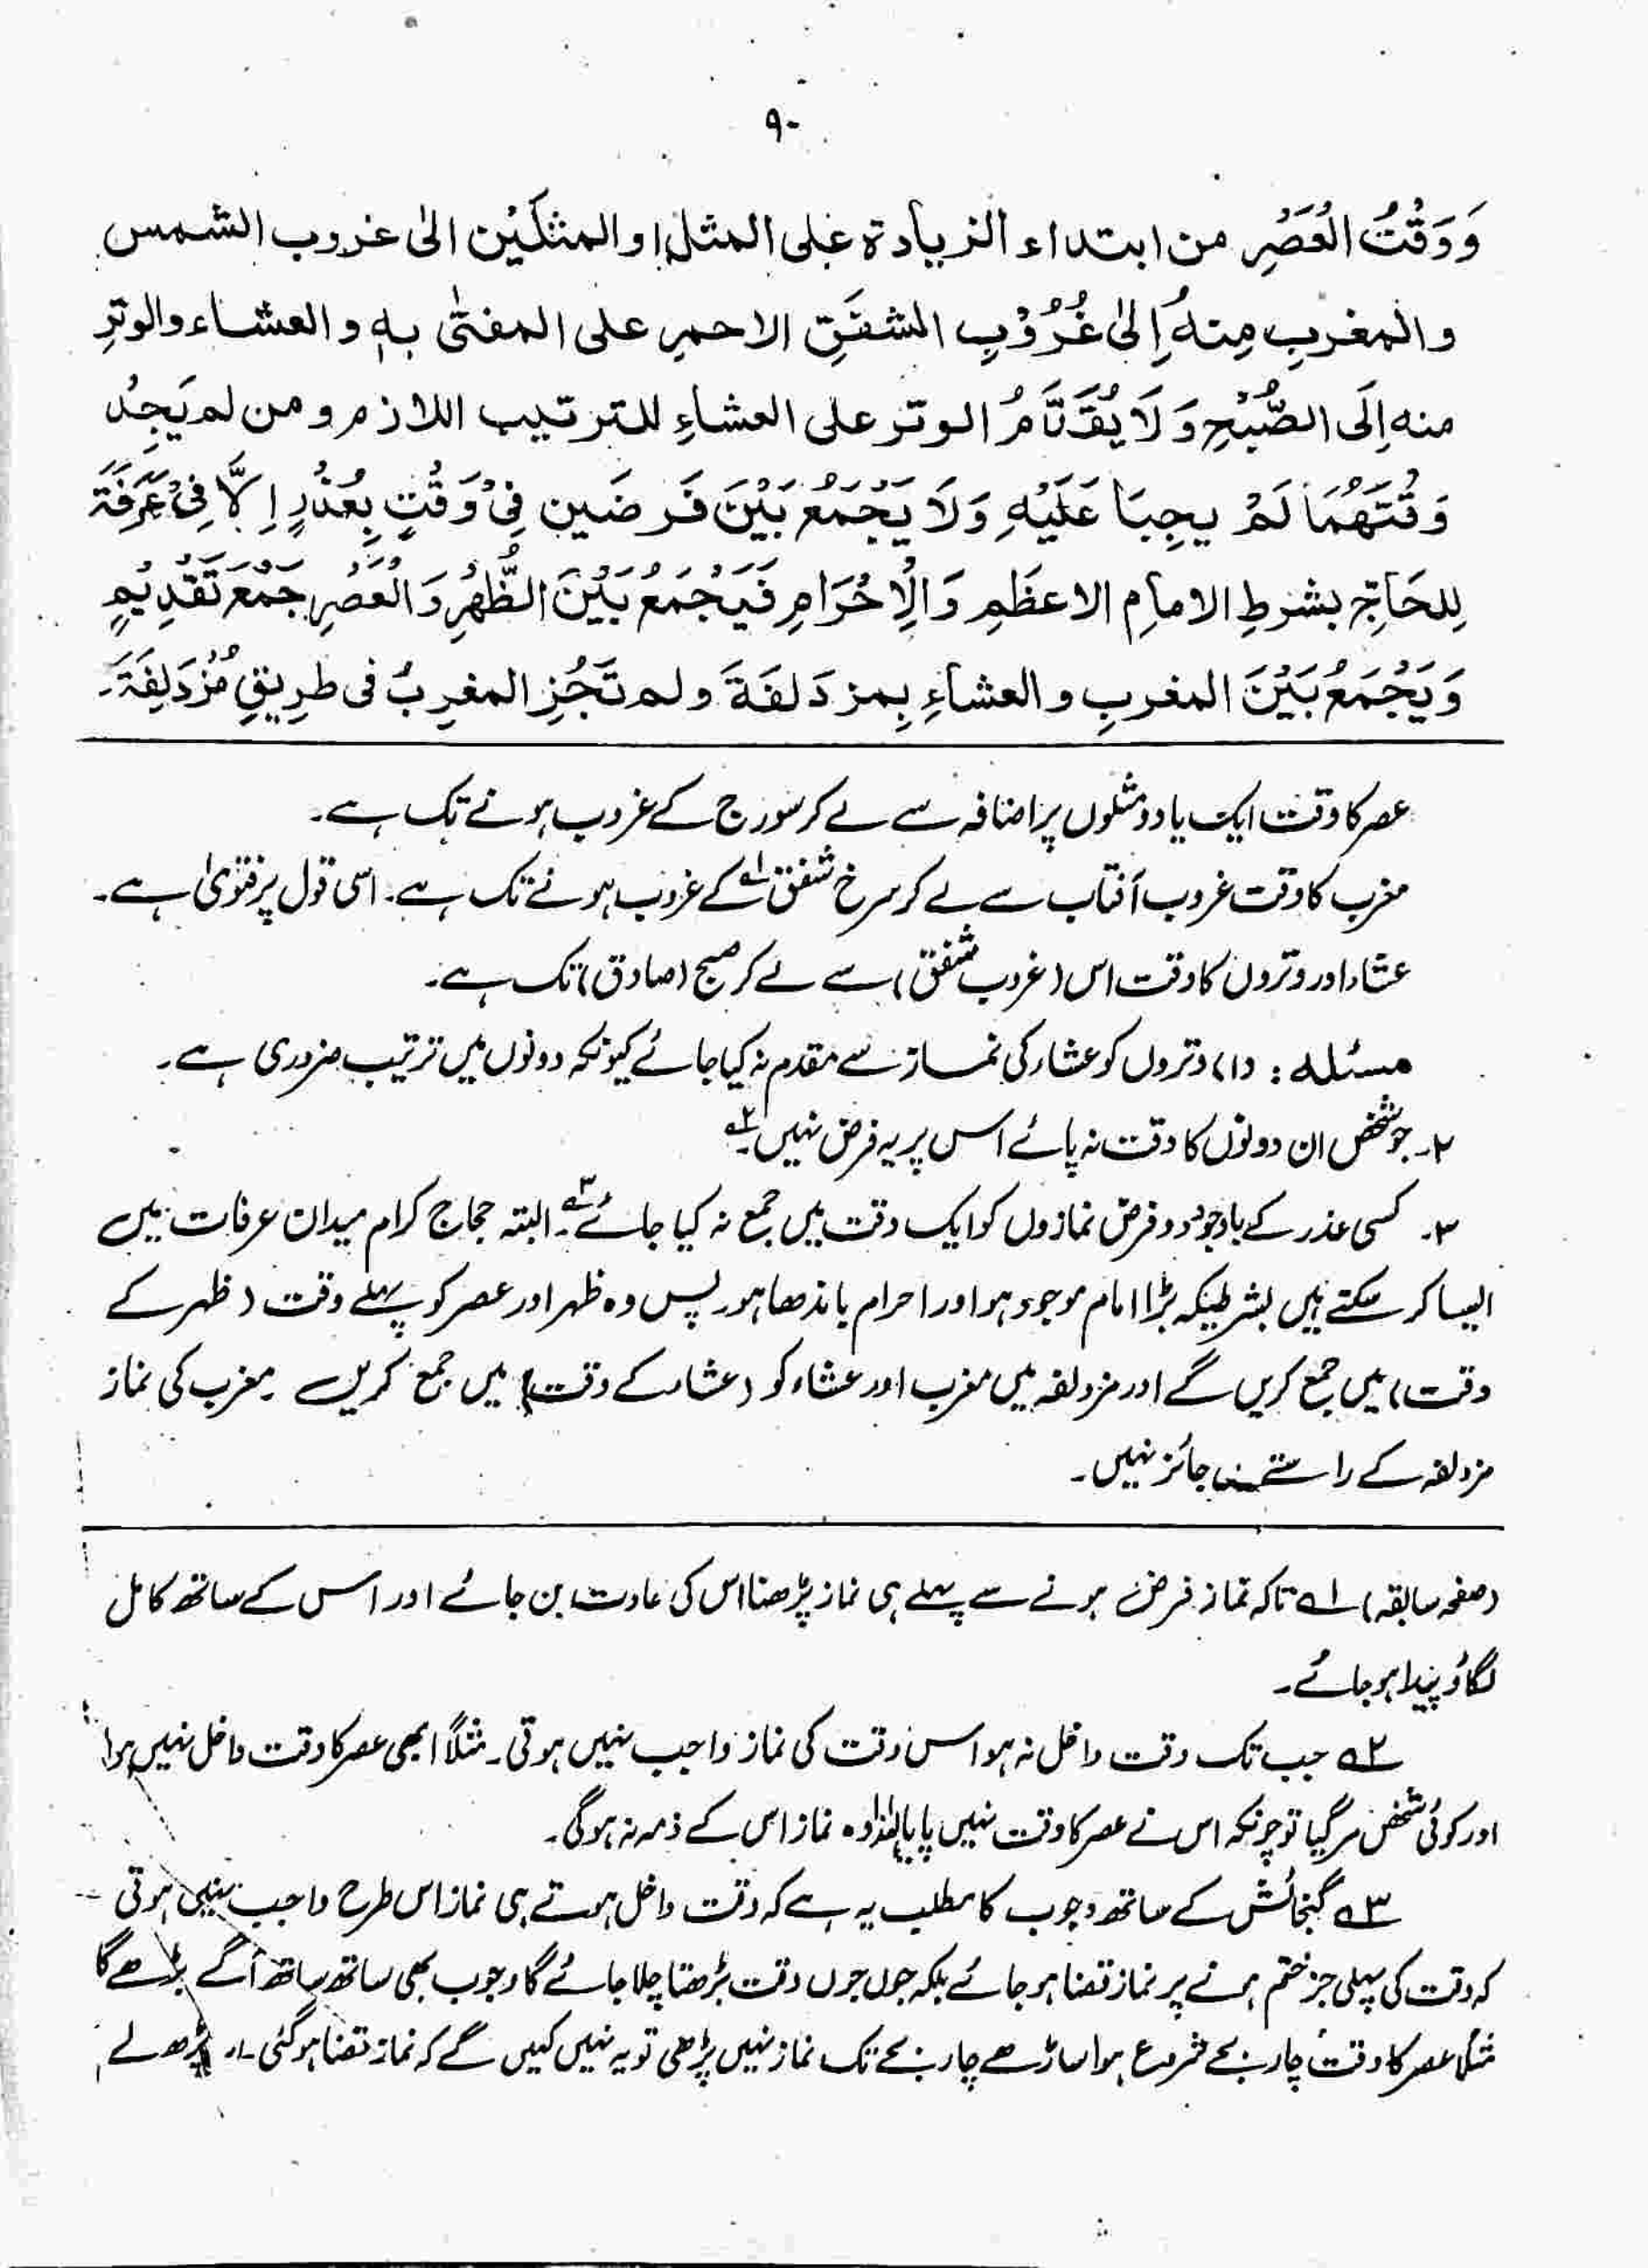 ۹۰
وَوَقْتُ الْعَصْرِ من ابتداء الزيادة على المثل او المثلَيْن الىٰ غروب الشمس
والمغربِ مِنهُ اِلىٰ غُرُوْبِ الشفَقِ الاحمرِ على المفتىٰ بهٖ والعشاء والوترِ
منه اِلَى الصُّبْحِ وَلَا يُقَدَّمُ الوتر على العشاءِ للترتيب اللازم ومن لم يَجِدْ
وَقْتَهُمَا لَمْ يجِبَا عَلَيْهِ وَلَا يَجْمَعُ بَيْنَ فَرضَين فِىْ وَقْتٍ بِعُذْرٍ اِلَّا فِىْ عَرَفَةَ
لِلحَاجِّ بشرطِ الامامِ الاعظَمِ وَالْاِحْرَامِ فَيَجْمَعُ بَيْنَ الظُّهْرِ وَالْعَصْرِ جَمْعَ تَقْدِيْمٍ
وَيَجْمَعُ بَيْنَ المغربِ والعشاءِ بِمزدَلفَةَ ولم تَجُزِ المغرِبُ فى طرِيقِ مُزْدَلِفَةَ۔
عصر کا وقت ایک یا دو مثلوں پر اضافہ سے لے کر سورج کے غروب ہونے تک ہے۔
مغرب کا وقت غروب آفتاب سے لے کر سرخ شفق ۱؎ کے غروب ہونے تک ہے۔ اسی قول پر فتویٰ ہے۔
عشاء اور وتروں کا وقت اس (غروب شفق) سے لے کر صبح (صادق) تک ہے۔
مسئلہ : (۱) وتروں کو عشاء کی نماز سے مقدم نہ کیا جائے کیونکہ دونوں میں ترتیب ضروری ہے۔
۲۔ جو شخص ان دونوں کا وقت نہ پائے اس پر یہ فرض نہیں۔ ۲؎
۳۔ کسی عذر کے باوجود دو فرض نمازوں کو ایک وقت میں جمع نہ کیا جائے ۳؎۔ البتہ حجاج کرام میدان عرفات میں
ایسا کر سکتے ہیں بشرطیکہ بڑا امام موجود ہو اور احرام باندھا ہو۔ پس وہ ظہر اور عصر کو پہلے وقت (ظہر کے
وقت) میں جمع کریں گے اور مزدلفہ میں مغرب اور عشاء کو (عشاء کے وقت) میں جمع کریں۔ مغرب کی نماز
مزدلفہ کے راستے میں جائز نہیں۔
(صفحہ سابقہ) ۱؎ تاکہ نماز فرض ہونے سے پہلے ہی نماز پڑھنا اس کی عادت بن جائے اور اس کے ساتھ کامل
لگاؤ پیدا ہو جائے۔
۲؎ جب تک وقت داخل نہ ہو اس وقت کی نماز واجب نہیں ہوتی۔ مثلاً ابھی عصر کا وقت داخل نہیں ہوا
اور کوئی شخص مر گیا تو چونکہ اس نے عصر کا وقت نہیں پایا لہٰذا وہ نماز اس کے ذمہ نہ ہوگی۔
۳؎ گنجائش کے ساتھ وجوب کا مطلب یہ ہے کہ وقت داخل ہوتے ہی نماز اس طرح واجب نہیں ہوتی
کہ وقت کی پہلی جز ختم ہونے پر نماز قضا ہو جائے بلکہ جوں جوں وقت بڑھتا چلا جائے گا وجوب بھی ساتھ ساتھ آگے بڑھے گا
مثلاً عصر کا وقت چار بجے شروع ہوا ساڑھے چار بجے تک نماز نہیں پڑھی تو یہ نہیں کہیں گے کہ نماز قضا ہو گئی۔